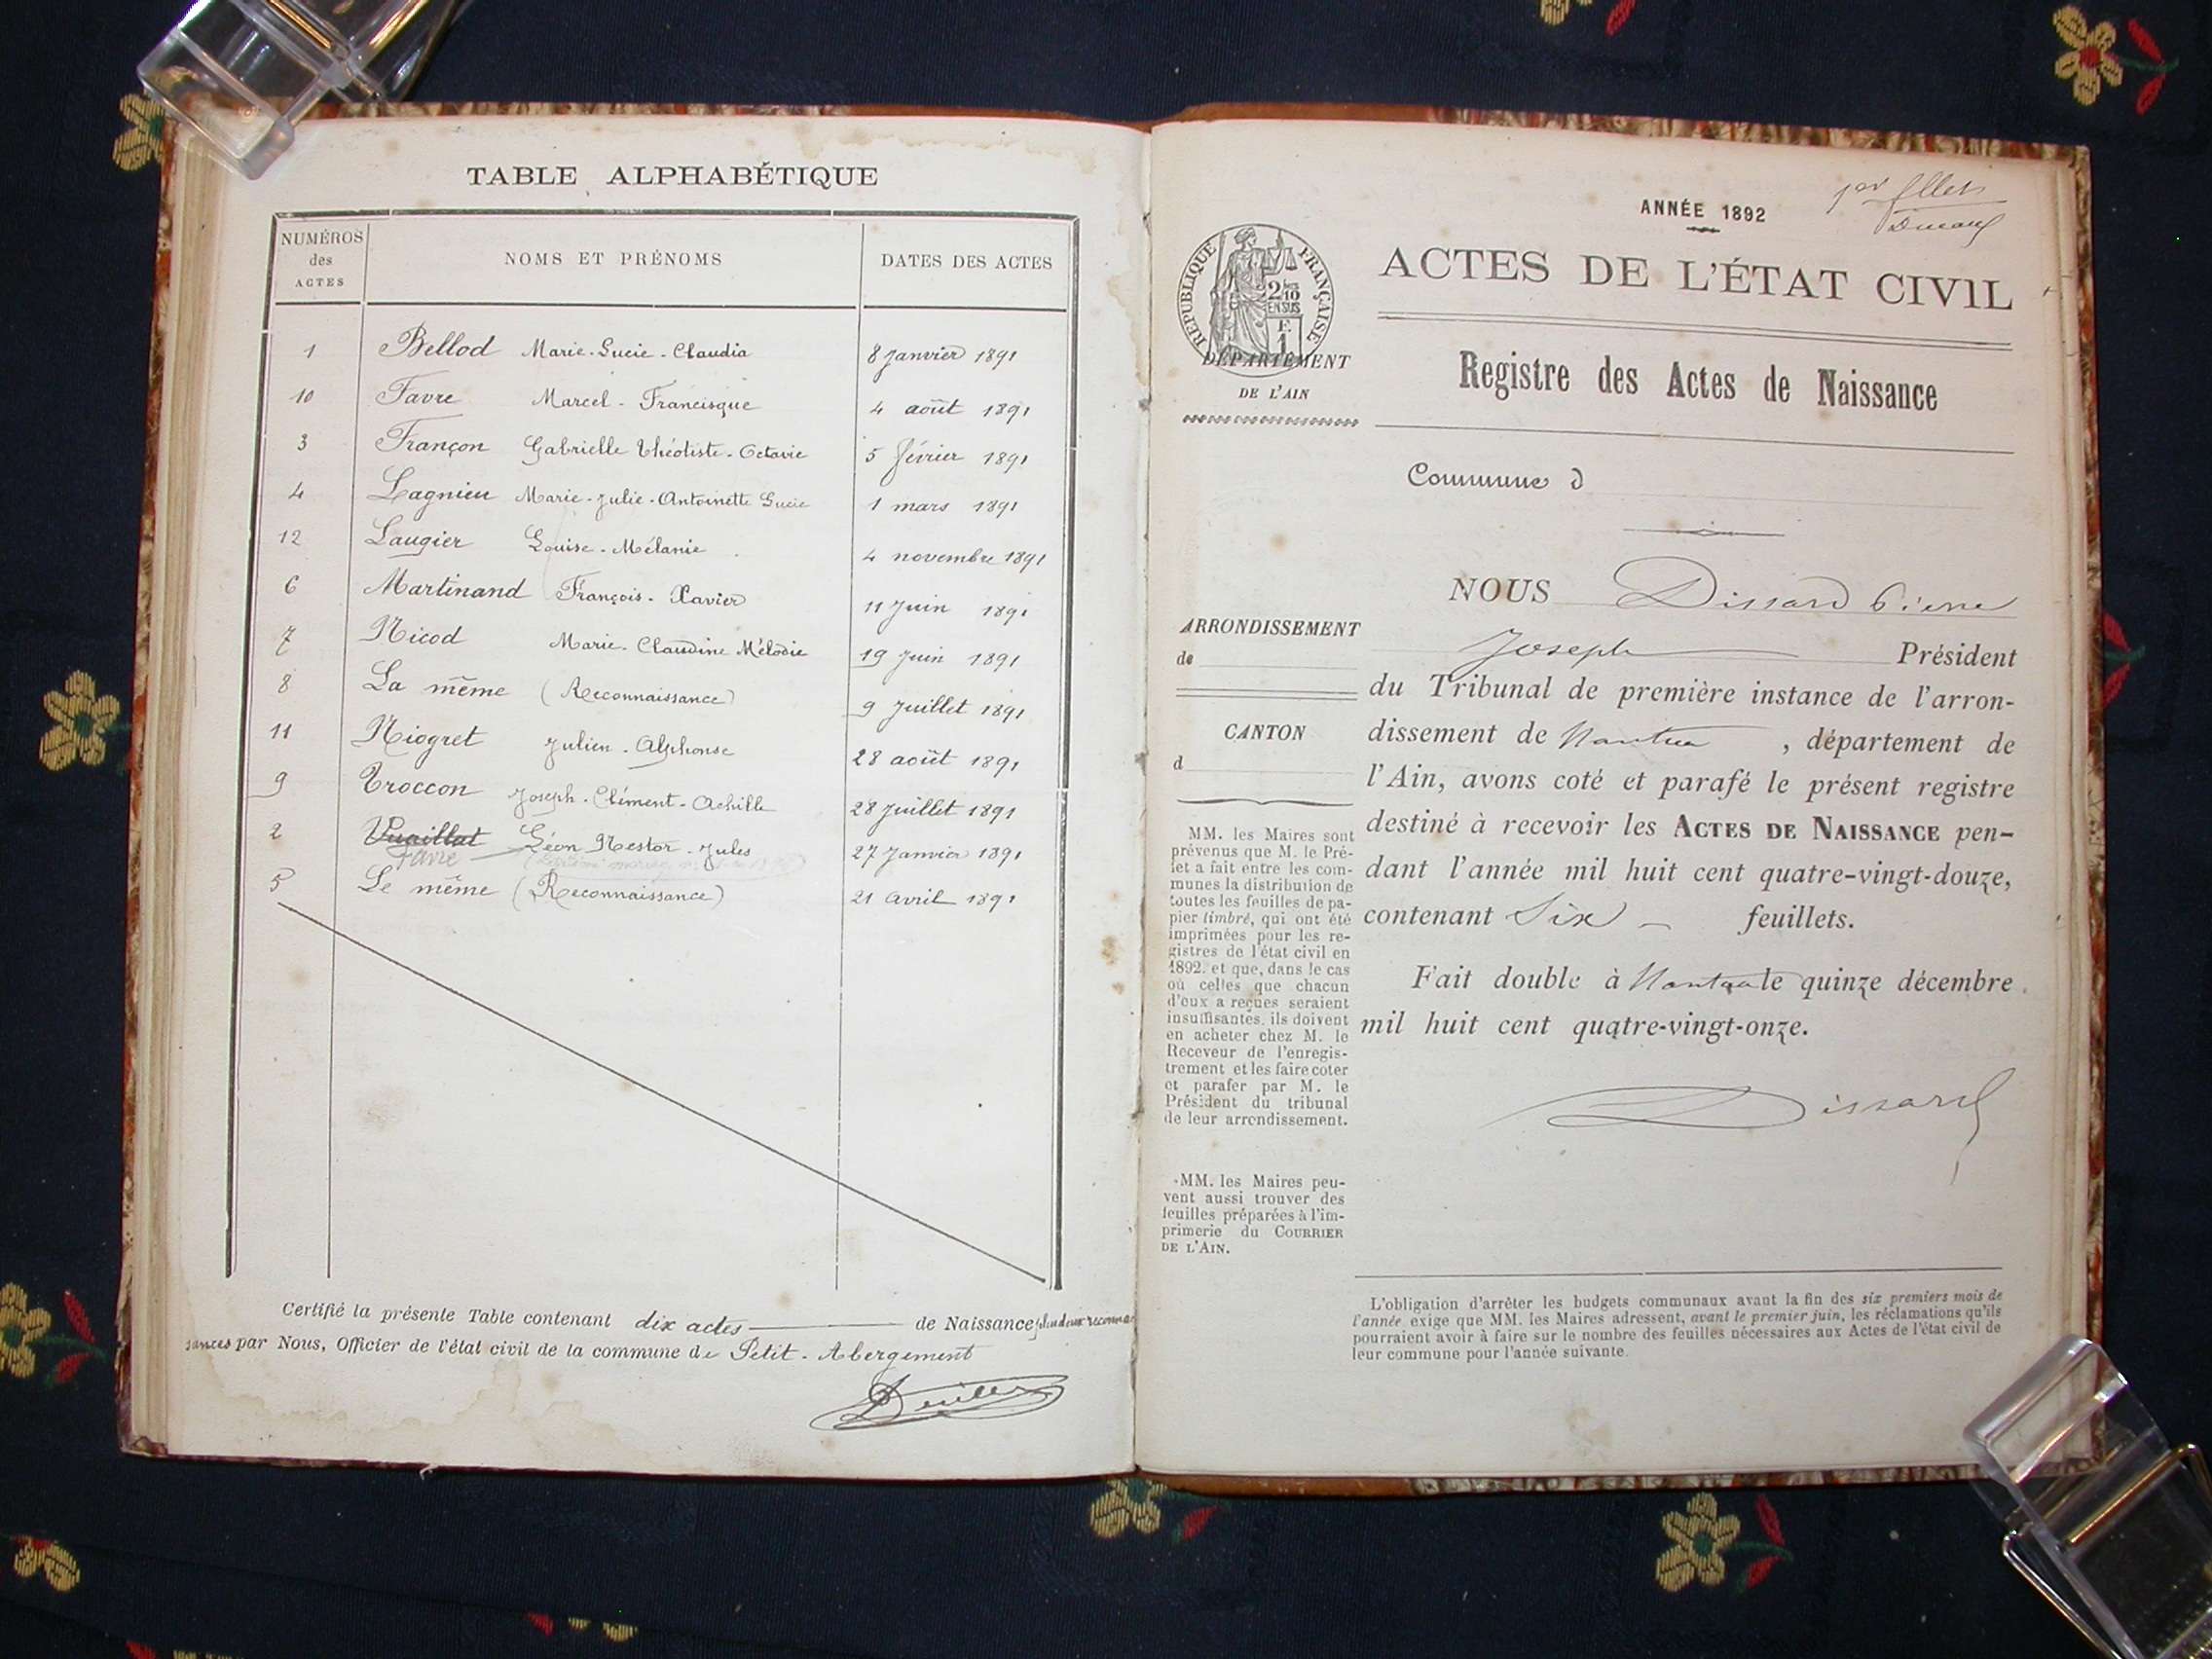 TABLE ALPHABÉTIQUE
NUMÉROS des ACTES
NOMS ET PRÉNOMS
DATES DES ACTES
1 Bellod Marie-Lucie-Claudia 8 Janvier 1891
10 Favre Marcel-Francisque 4 août 1891
3 Françon Gabrielle Théotiste-Octavie 5 février 1891
4 Lagnieu Marie-Julie-Antoinette Lucie 1 mars 1891
12 Laugier Louise-Mélanie 4 novembre 1891
6 Martinand François-Xavier 11 Juin 1891
7 Nicod Marie-Claudine Mélodie 19 Juin 1891
8 La même (Reconnaissance) 9 Juillet 1891
11 Niogret Julien-Alphonse 28 août 1891
9 Troccon Joseph-Clément-Achille 28 Juillet 1891
2 Vuaillat Léon Nestor-Jules 27 Janvier 1891
Favre
5 Le même (Reconnaissance) 21 Avril 1891
Certifié la présente Table contenant dix actes de Naissance plus deux reconnais
sances par Nous, Officier de l'état civil de la commune de Petit-Abergement
ANNÉE 1892
1er
RÉPUBLIQUE FRANÇAISE
2/10 EN SUS
F. 1
ACTES DE L'ÉTAT CIVIL
DÉPARTEMENT
DE L'AIN
Registre des Actes de Naissance
Commune d
NOUS Dissard Pierre
Joseph Président
du Tribunal de première instance de l'arron-
dissement de Nantua, département de
l'Ain, avons coté et parafé le présent registre
destiné à recevoir les ACTES DE NAISSANCE pen-
dant l'année mil huit cent quatre-vingt-douze,
contenant Six feuillets.
Fait double à Nantua le quinze décembre
mil huit cent quatre-vingt-onze.
Dissard
ARRONDISSEMENT
de
CANTON
d
MM. les Maires sont
prévenus que M. le Pré-
fet a fait entre les com-
munes la distribution de
toutes les feuilles de pa-
pier timbré, qui ont été
imprimées pour les re-
gistres de l'état civil en
1892. et que, dans le cas
où celles que chacun
d'eux a reçues seraient
insuffisantes, ils doivent
en acheter chez M. le
Receveur de l'enregis-
trement et les faire coter
et parafer par M. le
Président du tribunal
de leur arrondissement.
MM. les Maires peu-
vent aussi trouver des
feuilles préparées à l'im-
primerie du COURRIER
DE L'AIN.
L'obligation d'arrêter les budgets communaux avant la fin des six premiers mois de
l'année exige que MM. les Maires adressent, avant le premier juin, les réclamations qu'ils
pourraient avoir à faire sur le nombre des feuilles nécessaires aux Actes de l'état civil de
leur commune pour l'année suivante.